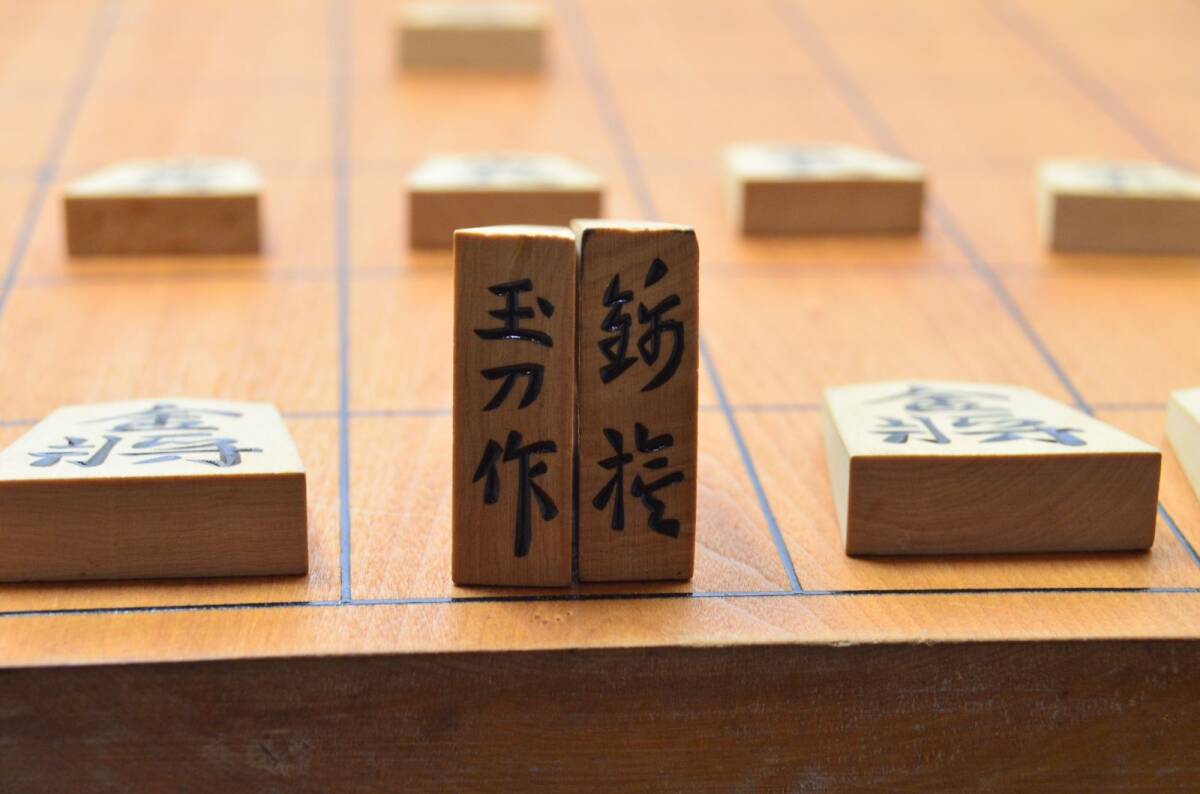 玉刀作
錦旗
金将
金将